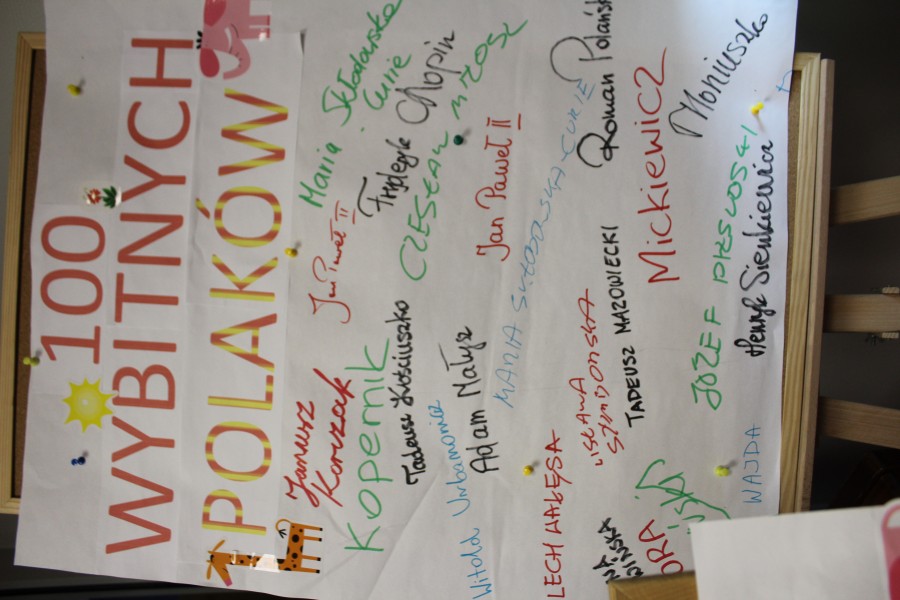 100
WYBITNYCH
POLAKÓW
Janusz
Korczak
Jan Paweł II
Maria Skłodowska
Curie
Kopernik
Tadeusz Kościuszko
Fryderyk Chopin
CZESŁAW MIŁOSZ
Witold Urbanowicz
Adam Małysz
Jan Paweł II
MARIA SKŁODOWSKA-CURIE
LECH WAŁĘSA
WISŁAWA
SZYMBORSKA
TADEUSZ MAZOWIECKI
Roman Polański
Mickiewicz
Moniuszko
JÓZEF PIŁSUDSKI
WAJDA
Henryk Sienkiewicz